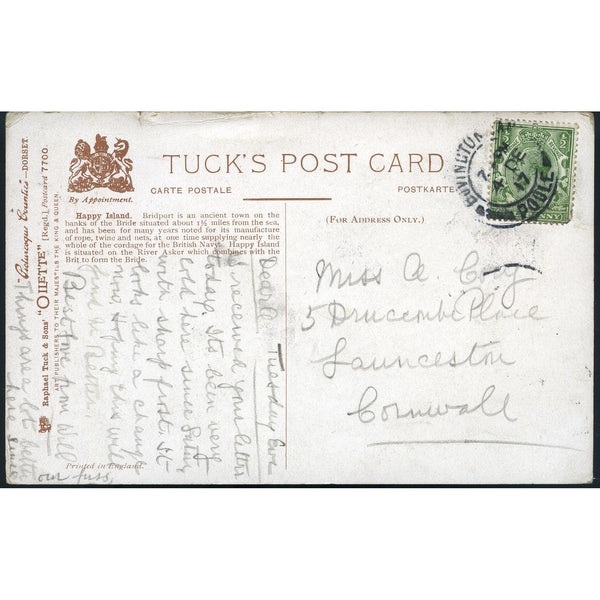 TUCK'S POST CARD
CARTE POSTALE
POSTKARTE
By Appointment.
(FOR ADDRESS ONLY.)
Happy Island. Bridport is an ancient town on the
banks of the Bride situated about 1½ miles from the sea,
and has been for many years noted for its manufacture
of rope, twine and nets, at one time supplying nearly the
whole of the cordage for the British Navy. Happy Island
is situated on the River Asker which combines with the
Brit to form the Bride.
"Picturesque Counties"—DORSET.
"OILETTE" [Regd.] Postcard 7700.
Raphael Tuck & Sons'
ART PUBLISHERS TO THEIR MAJESTIES THE KING & QUEEN.
Printed in England.
Miss A. Cory
5 Druccombe Place
Launceston
Cornwall
Tuesday Eve
Dear
I received your letter
today. Its been very
cold here since Satur
with sharp frost. It
looks like a change
now. Hoping this will
find U Better
Best luv from Will
Things are a lot better
here since
our fuss,
POOLE